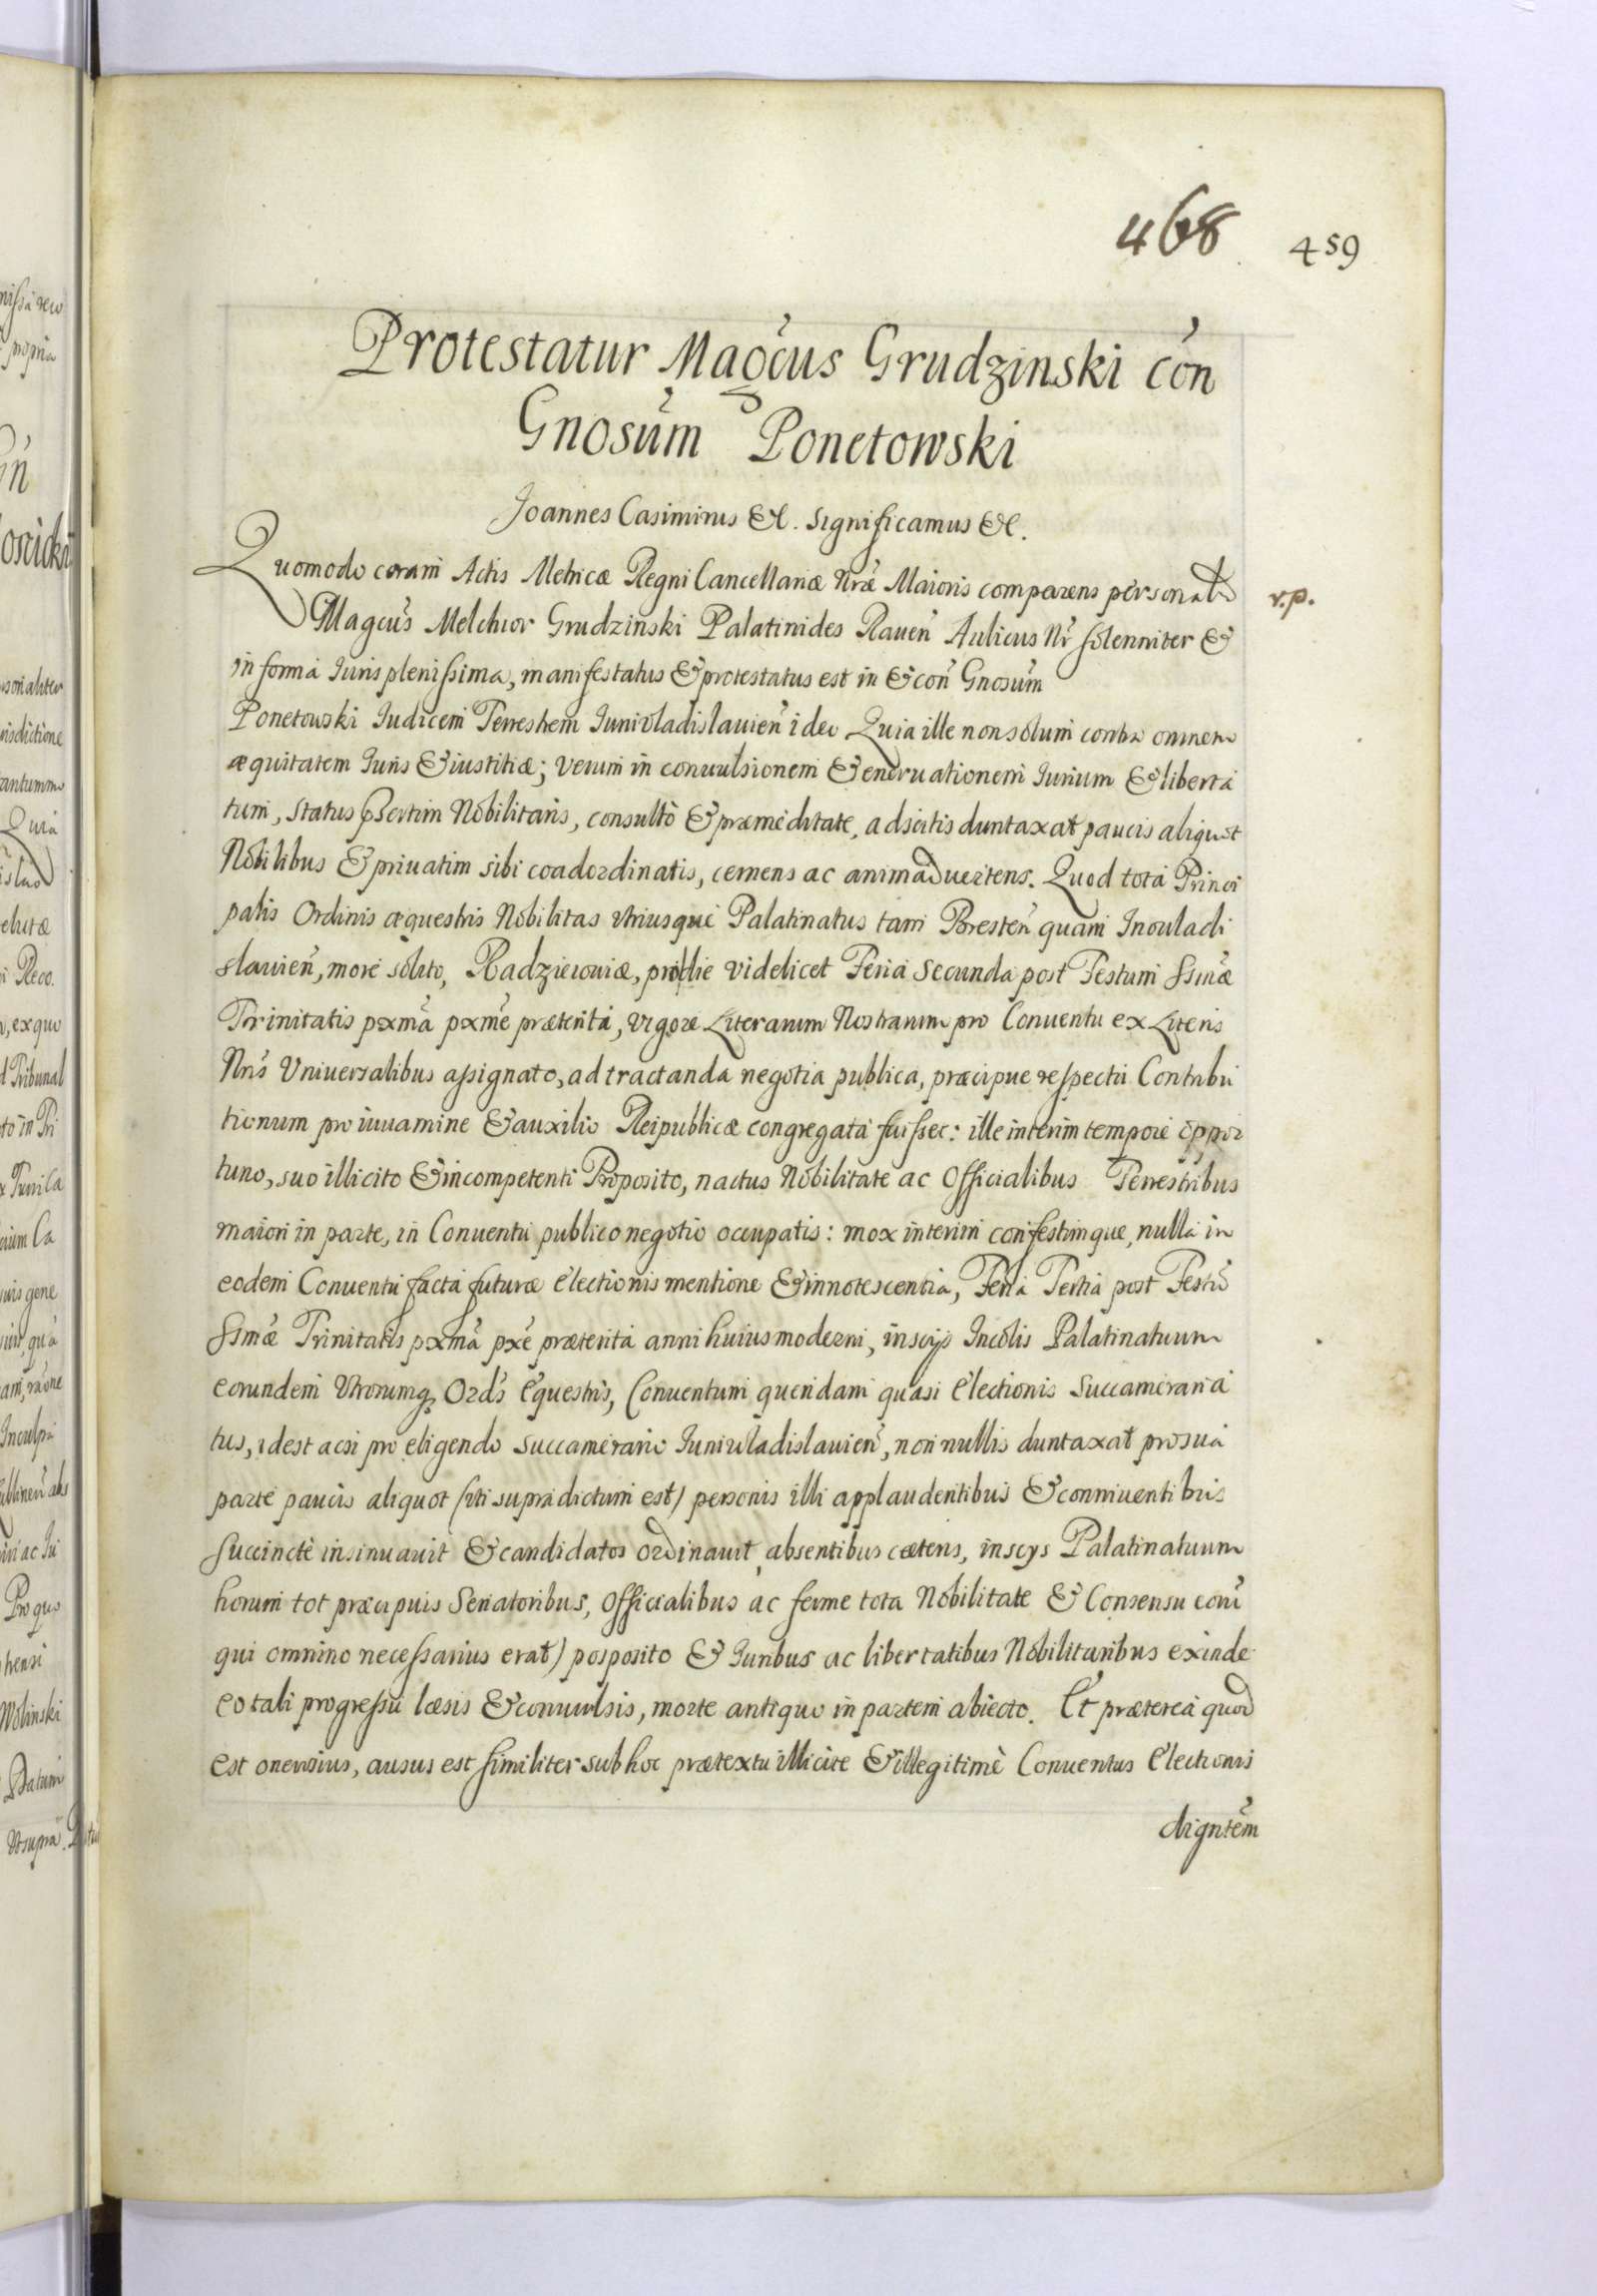 468
459
Protestatur Magcus Grudzinski con
Gnosum Ponetowski
Joannes Casimirus &c. Significamus &c.
Quomodo coram Actis Metricæ Regni Cancellariæ Nræ Maioris comparens personalr
r.p.
Magcus Melchior Grudzinski Palatinides Rauen Aulicus Nr solenniter &
in forma Iuris plenissima, manifestatus & protestatus est in & con Gnosum
Ponetowski Iudicem Terrestrem Iuniuladislauien ideo Quia ille non solum contra omnem
æquitatem Iuris & iustitiæ; verum in conuulsionem & eneruationem Iurium & liberta
tum, status psertim Nobilitaris, consultò & præmeditate, adscitis duntaxat paucis aliquot
Nobilibus & priuatim sibi coadordinatis, cernens ac animaduertens. Quod tota Princi
palis Ordinis æquestris Nobilitas vtriusque Palatinatus tam Bresten quam Inouladi
slauien, more solito, Radzieiouiæ, pridie videlicet Feria Secunda post Festum Ssmæ
Trinitatis pxma pxme præterita, vigore Literarum Nostrarum pro Conuentu ex Literis
Nris Vniuersalibus assignato, ad tractanda negotia publica, præcipue respectu Contribu
tionum pro iuuamine & auxilio Reipublicæ congregata fuisset: ille interim tempore oppor
tuno, suo illicito & incompetenti Proposito, nactus Nobilitate ac Officialibus Terrestribus
maiori in parte, in Conuentu publico negotio occupatis: mox interim confestimque, nulla in
eodem Conuentu facta futuræ Electionis mentione & innotescentia, Feria Tertia post Festu
Ssmæ Trinitatis pxma pxe præterita anni huius moderni, inscijs Incolis Palatinatuum
eorundem Vtrorumq Ords Equestris, Conuentum quendam quasi Electionis Succameraria
tus, idest acsi pro eligendo Succamerario Iuniuladislauien, non nullis duntaxat pro sua
parte paucis aliquot (vti supra dictum est) personis illi applaudentibus & conniuentibus
succinctè insinuauit & candidatos ordinauit absentibus cæteris, inscys Palatinatuum
horum tot præcipuis Senatoribus, Officialibus ac ferme tota Nobilitate & Consensu com
qui omnino necessarius erat) posposito & Iuribus ac libertatibus Nobilitaribus exinde
eo tali progressu læsis & conuulsis, morte antiquo in partem abiecto. Et præterea quod
est onerosius, ausus est similiter sub hoc prætextu illicite & illegitimè Conuentus Electionis
digntem